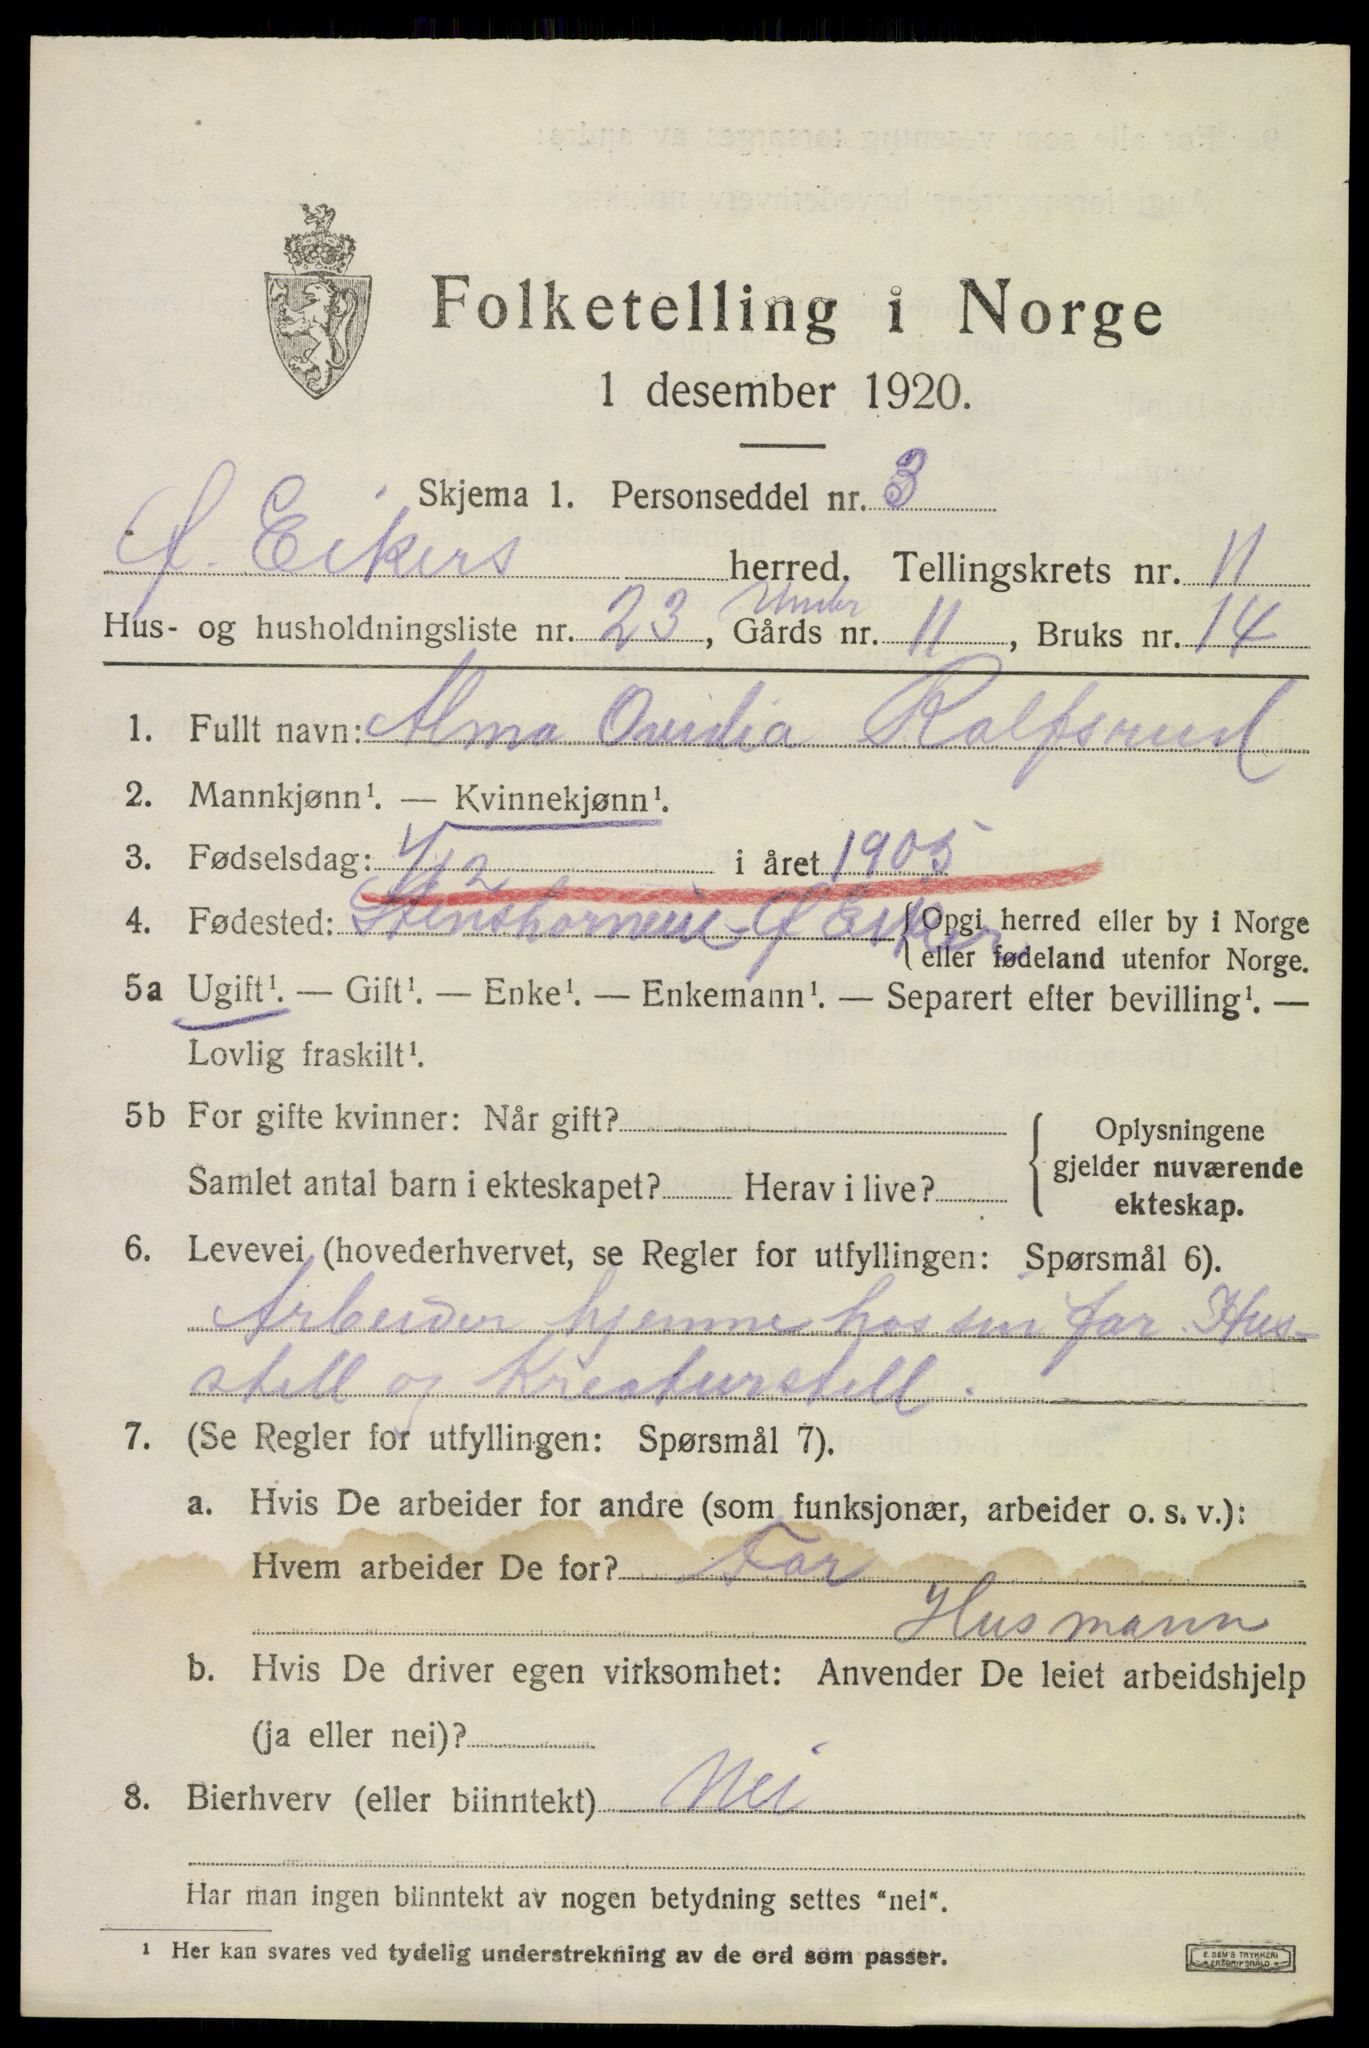 Folketelling i Norge
1 desember 1920.
Skjema 1. Personseddel nr. 3
Ø. Eikers herred. Tellingskrets nr. 11
Hus- og husholdningsliste nr. 23, Under Gårds nr. 11, Bruks nr. 14
1. Fullt navn: Alma Ovidia Rolfsrud
2. Mannkjønn¹. — Kvinnekjønn¹.
3. Fødselsdag: 4/12 i året 1905
4. Fødested: Ø Eiker {Opgi herred eller by i Norge
eller fødeland utenfor Norge.
5a Ugift¹. — Gift¹. — Enke¹. — Enkemann¹. — Separert efter bevilling¹. —
Lovlig fraskilt¹.
5b For gifte kvinner: Når gift? Oplysningene
gjelder nuværende
Samlet antal barn i ekteskapet? Herav i live? ekteskap.
6. Levevei (hovederhvervet, se Regler for utfyllingen: Spørsmål 6).
Arbeider hjemme hos sin far. Hus-
stell og Kreaturstell.
7. (Se Regler for utfyllingen: Spørsmål 7).
a. Hvis De arbeider for andre (som funksjonær, arbeider o. s. v.):
Hvem arbeider De for? Far
Husmann
b. Hvis De driver egen virksomhet: Anvender De leiet arbeidshjelp
(ja eller nei)?
8. Bierhverv (eller biinntekt) Nei
Har man ingen biinntekt av nogen betydning settes "nei".
¹ Her kan svares ved tydelig understrekning av de ord som passer.
E. SEM'S TRYKKERI
FREDRIKSHALD